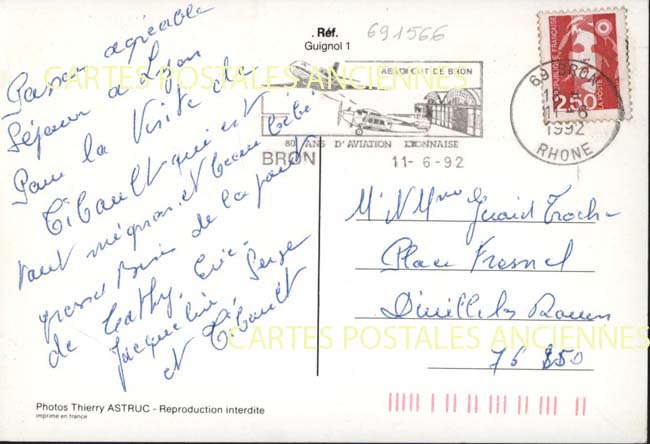 Réf.
Guignol 1
691566
CARTES POSTALES ANCIENNES
AEROPORT DE BRON
80 ANS D'AVIATION LYONNAISE
BRON 11-6-92
69 BRON
11-6
1992
RHONE
REPUBLIQUE FRANÇAISE
2,50
LA POSTE
Passons agréable
Séjour a Lyon
Pour la Visite de
Tibault qui est
tout mignon et beau bébé
gross Bises de la part
de Cathy, Eric
Jacqueline Serge
et Tibault
Mr Mme
Place Fresnel
Rouen
76 250
CARTES POSTALES ANCIENNES
Photos Thierry ASTRUC - Reproduction interdite
imprimé en france